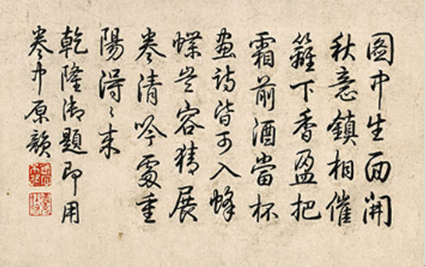 圖中生面開
秋意鎮相催
籬下香盈把
霜前酒當杯
畫詩皆可入蜂
蝶莫容猜展
卷清吟處重
陽得〻來
乾隆御題即用
卷中原韻